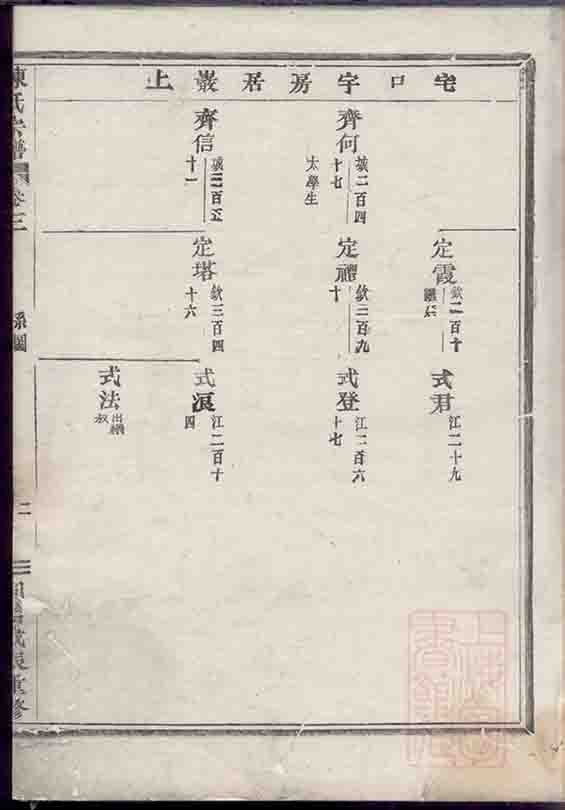 宅口字房居巖上
定霞
欽二百十
繼仁
式君
江二十九
齊何
城二百四十七
太學生
定禮
欽三百九十
式登
江二百六十七
齊信
城三百五十一
定塔
欽三百四十六
式派
江二百十四
式法
出繼叔
陳氏宗譜
卷三
系圖
二
重修
上海
圖書館藏